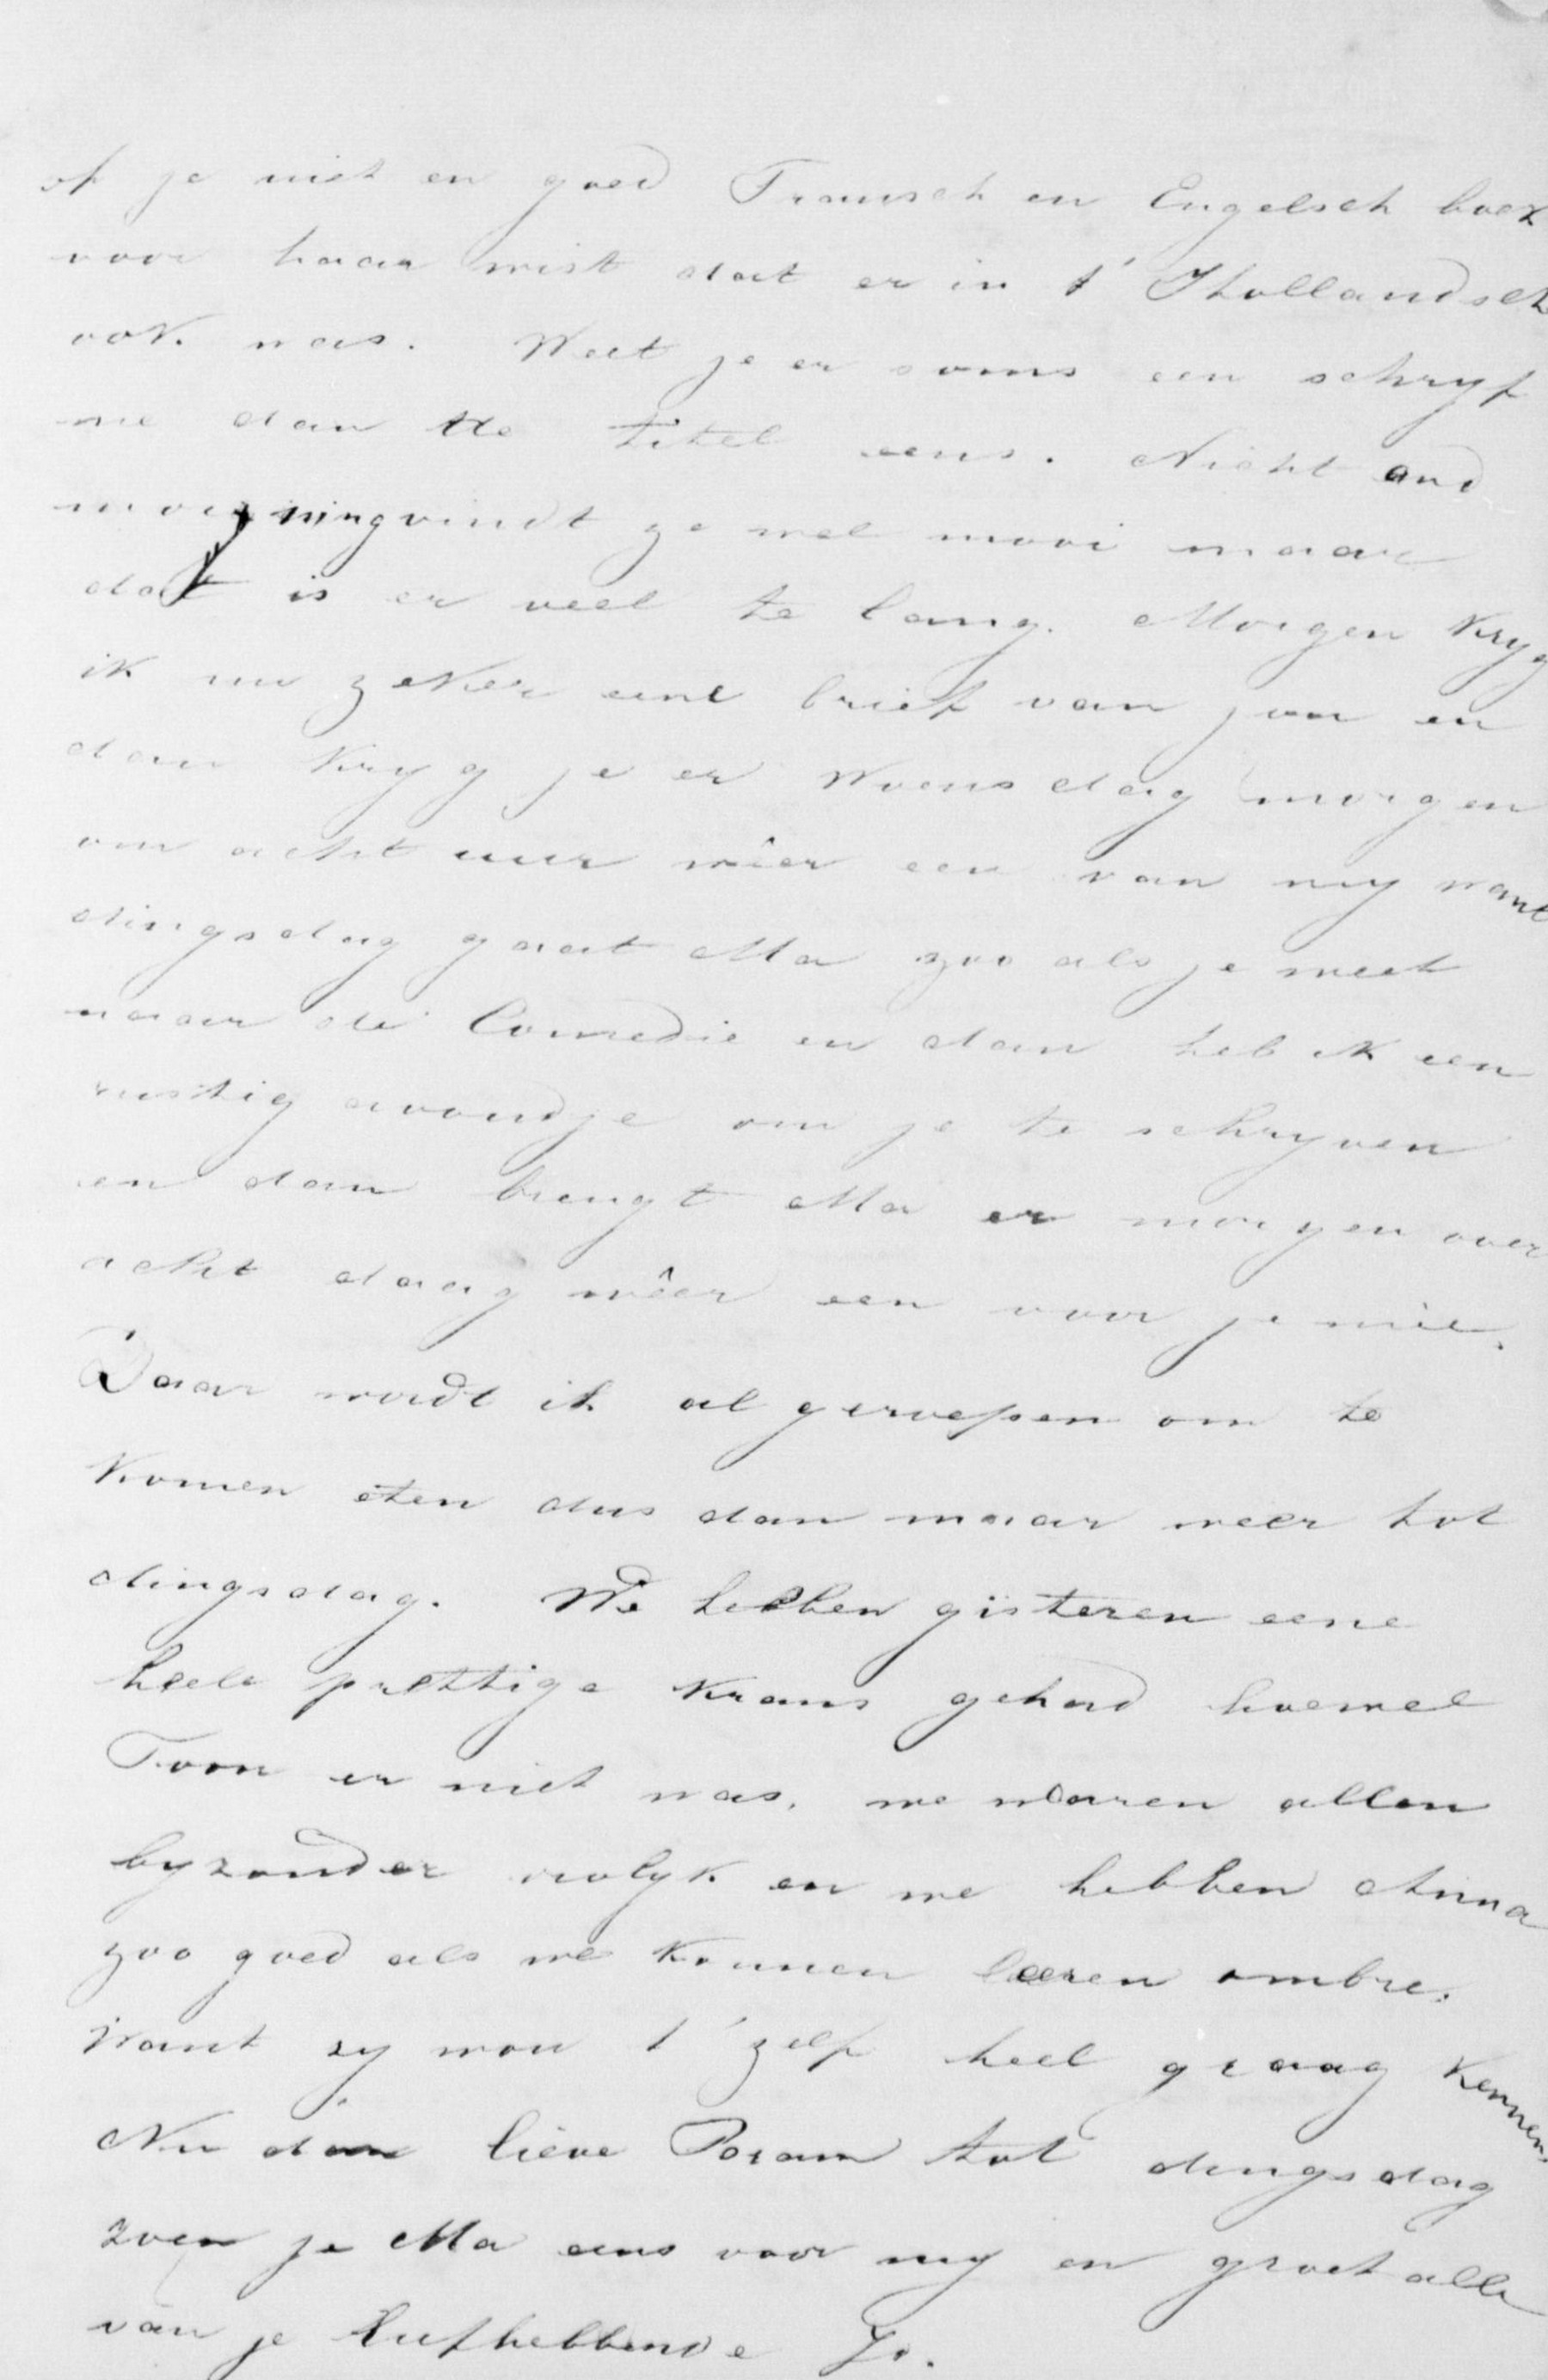 of je niet en goed Fransch en Engelsch boek
voor haar wist dat er in t' Hollandsch
ook was. Weet je er soms een schryf
me dan de titel eens. Nicht and
morning vindt ze wel mooi maar
dat is er veel te lang. Morgen kryg
ik nu zeker eene brief van jou en
dan kryg je er Woensdag morgen
om acht uur wêer een van my want
dingsdag gaat Ma zoo als je weet
naar de Comedie en dan heb ik een
rustig avondje om je te schryven
en dan brengt Ma er morgen over
acht daag wêer een voor je meê.
Daar wordt ik al geroepen om te
komen eten dus dan maar weer tot
dingsdag. We hebben gisteren eene
heele prettige krans gehad hoewel
Toon er niet was, we waren allen
byzonder vrolyk en we hebben Anna
zoo goed als we konnen leeren ombre.
Want zy wou t' zelf heel graag kennen.
Nu dan lieve tot dingsdag
zoen je Ma eens voor my en groet alle
van je liefhebbende Jo.